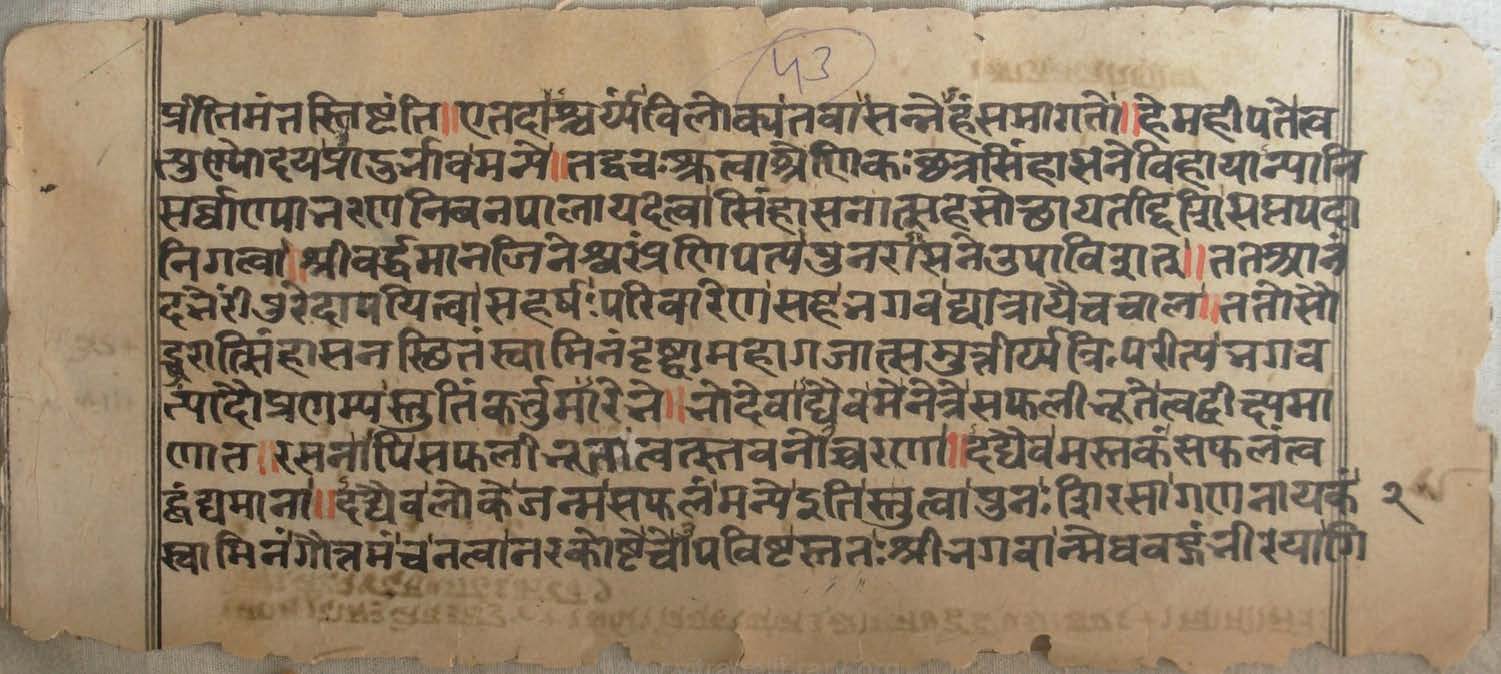 ५३
प्रीतिमंतस्तिष्टंति॥एतदाश्चर्य्यंविलोक्यंतवासन्नेहंसमागतो॥हेमहीपतेत्व
त्पुण्योदयप्राडुर्भावमन्ये॥तद्वचःश्रुत्वाश्रेणिकःछत्रसिंहासनेविहायान्यानि
सर्वाण्याभरणनिबनपालायदत्वासिंहासनात्सहसोच्छायतद्दिशिसप्तपदा
निगत्वा॥श्रीवर्द्धमानजिनेश्वरंप्रणिपत्यपुनरासनेउपाविशत्॥ततआनं
दभेरीपुरेदापयित्वासहर्षःपरिवारेणसहभगवद्यात्रायैचचाल॥ततोसौ
दूरात्सिंहासनस्थितंस्वामिनंदृष्ट्वामहागजात्समुत्तीर्य्यत्रिःपरीत्यभगव
त्पादौप्रणम्यस्तुतिंकर्त्तुमारेभे॥भोदेवाद्यैवमेनेत्रेसफलीभूतेत्वद्वीक्ष्यमा
णात॥रसनापिसफलीभूतात्वत्स्तवनोच्चरणा॥दद्यैवमस्तकंसफलंत्व
द्वंद्यमाना॥दद्यैवलोकेजन्मसफलंमन्येइतिस्तुत्वापुनःशिरसागणनायकं
२
स्वामिनंगौत्तमंचनत्वानरकोष्टेचोपविष्टस्ततःश्रीभगवान्मेघवद्गंभीरयागि